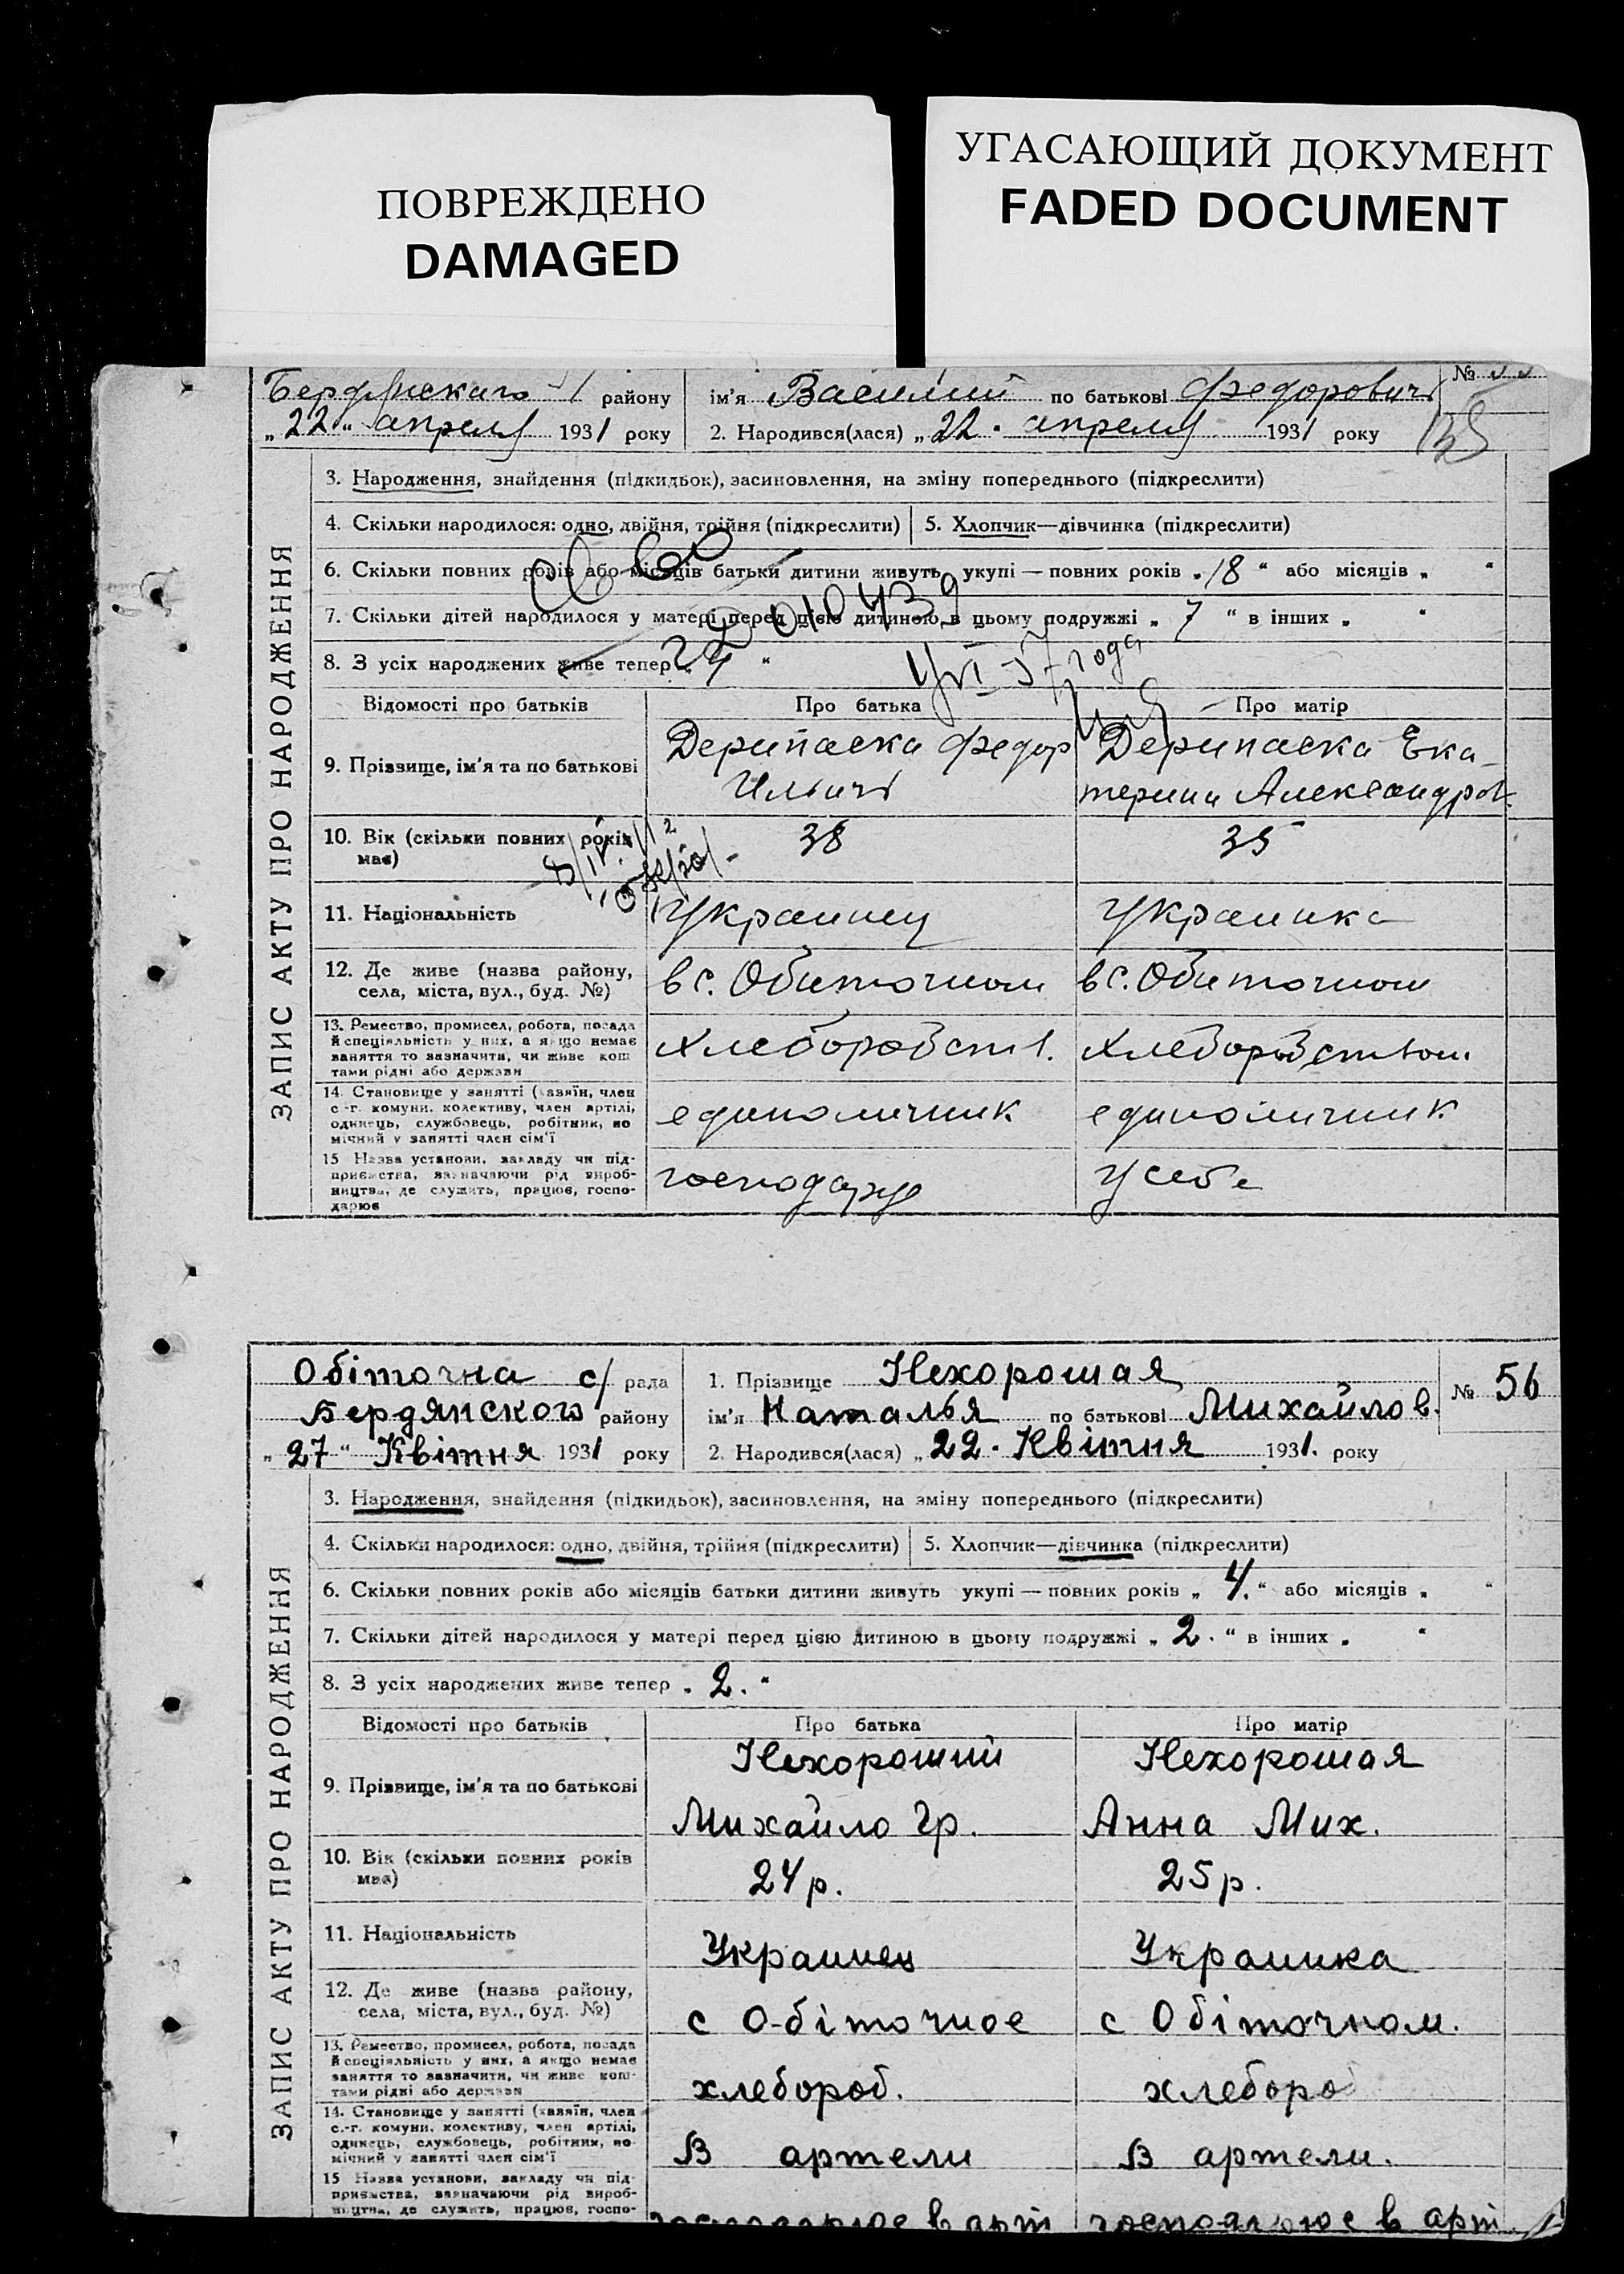 ПОВРЕЖДЕНО
DAMAGED
УГАСАЮЩИЙ ДОКУМЕНТ
FADED DOCUMENT
Бердянскаго района району
„22“ апреля 1931 року
ім'я Василий по батькові Федорович
№
2. Народився(лася) „22. апреля 1931 року
ЗАПИС АКТУ ПРО НАРОДЖЕННЯ
3. Народження, знайдення (підкидьок), засиновлення, на зміну попереднього (підкреслити)
4. Скільки народилося: одно, двійня, трійня (підкреслити)
5. Хлопчик—дівчинка (підкреслити)
6. Скільки повних років або місяців батьки дитини живуть укупі — повних років „18“ або місяців „ “
7. Скільки дітей народилося у матері перед цією дитиною в цьому подружжі „7“ в інших „ “
8. З усіх народжених живе тепер „ “
Відомості про батьків
Про батька
Про матір
9. Прізвище, ім'я та по батькові
Дерипаска Федор
Ильич
Дерипаска Ека-
терина Александров.
10. Вік (скільки повних років
має)
38
35
11. Національність
Украинец
Украинка
12. Де живе (назва району,
села, міста, вул., буд. №)
в с. Обиточном
в с. Обиточном
13. Ремество, промисел, робота, посада
й спеціяльність у них, а якщо немає
заняття то зазначити, чи живе кош
тами рідні або держави
хлеборобств.
хлеборобством
14. Становище у занятті (хазяїн, член
с.-г. комуни, колективу, член артілі,
одинець, службовець, робітник, по
мічний у занятті член сім'ї
единоличник
единоличник
15 Назва установи, закладу чи під-
приємства, зазначаючи рід вироб-
ництва, де служить, працює, госпо-
дарює
господарує
у себе
Обіточна с/ рада
Бердянского району
„27“ Квітня 1931 року
1. Прізвище Нехорошая
ім'я Наталья по батькові Михайлов.
2. Народився(лася) „22. Квітня 1931. року
№ 56
ЗАПИС АКТУ ПРО НАРОДЖЕННЯ
3. Народження, знайдення (підкидьок), засиновлення, на зміну попереднього (підкреслити)
4. Скільки народилося: одно, двійня, трійня (підкреслити)
5. Хлопчик—дівчинка (підкреслити)
6. Скільки повних років або місяців батьки дитини живуть укупі — повних років „4.“ або місяців „ “
7. Скільки дітей народилося у матері перед цією дитиною в цьому подружжі „2.“ в інших „ “
8. З усіх народжених живе тепер „2.“
Відомості про батьків
Про батька
Про матір
9. Прізвище, ім'я та по батькові
Нехороший
Михайло Гр.
Нехорошая
Анна Мих.
10. Вік (скільки повних років
має)
24 р.
25 р.
11. Національність
Украинец
Украинка
12. Де живе (назва району,
села, міста, вул., буд. №)
с Обіточное
с Обіточном.
13. Ремество, промисел, робота, посада
й спеціяльність у них, а якщо немає
заняття то зазначити, чи живе кош-
тами рідні або держави
хлебороб.
хлеборо
14. Становище у занятті (хазяїн, член
с.-г. комуни, колективу, член артілі,
одинець, службовець, робітник, по-
мічний у занятті член сім'ї
В артели
В артели.
15 Назва установи, закладу чи під-
приємства, зазначаючи рід вироб-
ництва, де служить, працює, госпо-
господарює в арт
господарює в арт.